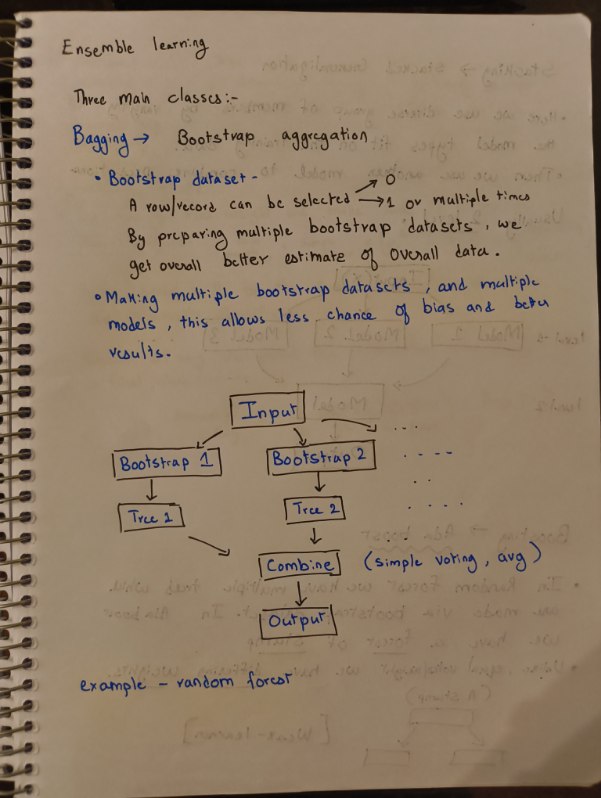 Ensemble learning
Three main classes:-
Bagging → Bootstrap aggregation
• Bootstrap dataset -
A row/record can be selected → 0
→ 1 or multiple times
By preparing multiple bootstrap datasets, we
get overall better estimate of overall data.
• Making multiple bootstrap datasets, and multiple
models, this allows less chance of bias and better
results.
Input
Bootstrap 1 Bootstrap 2
Tree 1 Tree 2
Combine (simple voting, avg)
Output
example - random forest